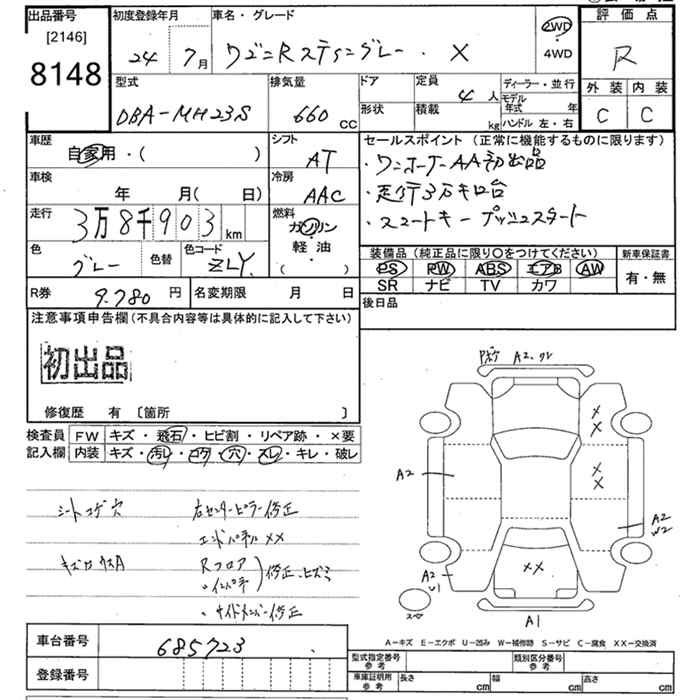 出品番号
[2146]
8148
初度登録年月
24年 7月
車名・グレード
ワゴンRスティングレー・X
2WD
4WD
評価点
R
外装 内装
C C
型式
DBA-MH23S
排気量
660 cc
ドア
形状
定員 4人
積載 kg
ディーラー・並行
モデル年式 年
ハンドル 左・右
車歴
自家用・( )
シフト
AT
セールスポイント(正常に機能するものに限ります)
・ワンオーナーAA初出品
・走行3万キロ台
・スマートキー プッシュスタート
車検
年 月(日)
冷房
AAC
走行
3万8千903 km
燃料
ガソリン
軽・油
( )
色
グレー
色替
色コード
ZLY
装備品(純正品に限り○をつけてください)
新車保証書
PS PW ABS エアB AW
SR ナビ TV カワ
有・無
R券 9.780円
名変期限 月 日
後日品
注意事項申告欄(不具合内容等は具体的に記入して下さい)
初出品
修復歴 有 〔箇所 〕
検査員
記入欄
FW キズ・飛石・ヒビ割・リペア跡・×要
内装 キズ・汚レ・コゲ・穴・スレ・キレ・破レ
シートコゲ穴
右センターピラー修正
エンドパネルXX
Rフロア
・インパネ
修正、ヒズミ
・サイドメンバー修正
A2
XX
XX
A2
W2
XX
A2
U1
A1
A-キズ E-エクボ U-凹み W-補修跡 S-サビ C-腐食 XX-交換済
車台番号
685723
登録番号
型式指定番号
参考
類別区分番号
参考
車庫証明用
参考
長さ cm
幅 cm
高さ cm